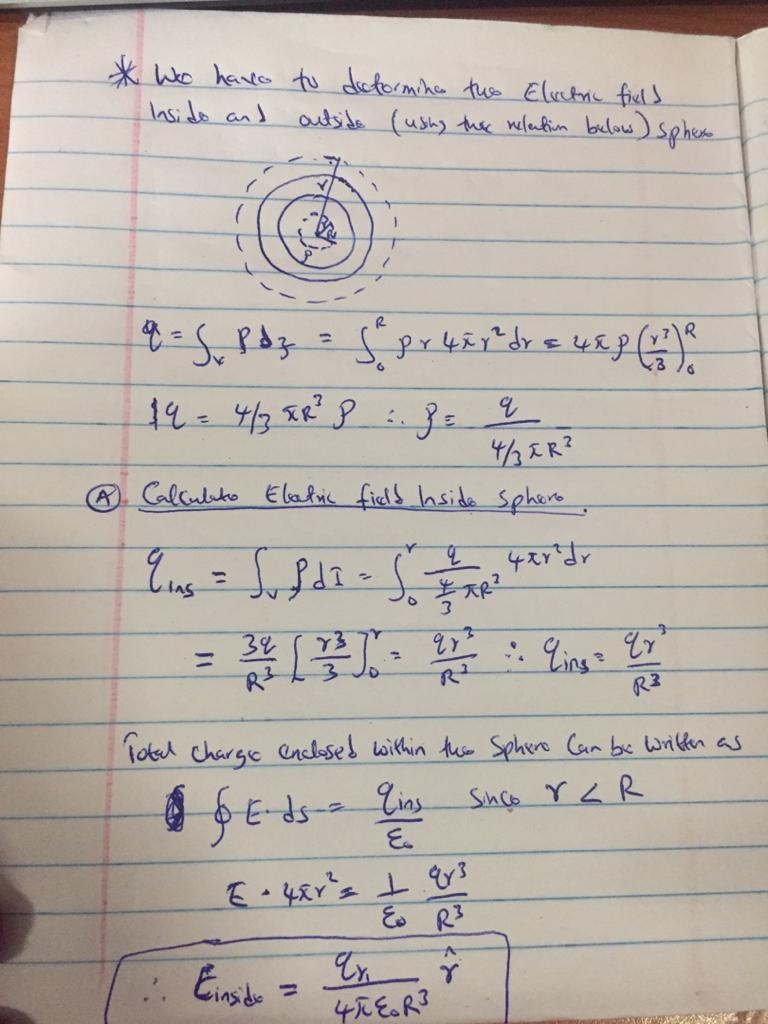 * We have to determine the Electric field
Inside and outside (using the relation below) sphere
r
R
ρ
q = ∫ᵥ ρdʒ = ∫₀ᴿ ρr 4πr²dr = 4πρ (r³/3)₀ᴿ
q = 4/3 πR³ ρ ∴ ρ = q / 4/3 πR³
Ⓐ Calculate Electric field Inside sphere.
qins = ∫ᵥ ρdI = ∫₀ʳ q / (4/3 πR³) 4πr²dr
= 3q/R³ [r3/3]₀ʳ = qr³/R³ ∴ qins = qr³/R3
Total charge enclosed within the Sphere Can be written as
∮ E · ds = qins/ε₀ since r < R
E · 4πr² = 1/ε₀ qr³/R³
∴ Einside = qr/4πε₀R³ r̂